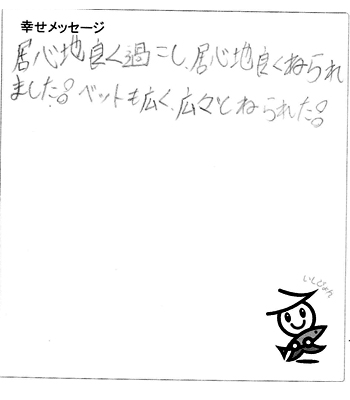 幸せメッセージ
居心地良く過ごし、居心地良くねられ
ました。ベットも広く、広々とねられた。